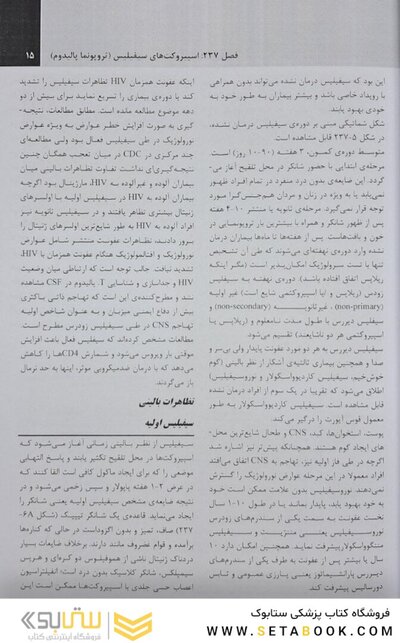 فصل ۲۳۷: اسپیروکت‌های سیفیلیس (تروپونما پالیدوم) ۱۵
این بود که سیفیلیس درمان نشده می‌تواند بدون همراهی
با رویداد خاصی باشد و بیشتر بیماران به طور خود به
خودی بهبود یابند.
شکل شماتیکی مبنی بر دوره‌ی سیفیلیس درمان نشده،
در شکل ۵-۲۳۷ قابل مشاهده است.
متوسط دوره‌ی کمون، ۳ هفته (۹۰-۱۰ روز) است.
مرحله‌ی ابتدایی با حضور شانکر در محل تلقیح آغاز می‌-
گردد. این ضایعه‌ی بدون درد منفرد در تمام افراد ظهور
نمی‌یابد یا به ویژه در زنان و مردان هم‌جنس‌گرا مورد
توجه قرار نمی‌گیرد. مرحله‌ی ثانویه یا منتشر ۱۰-۴ هفته
پس از ظهور شانکر و همراه با بیشترین بار تروپونمایی در
خون و بافت‌هاست. پس از هفته‌ها تا ماه‌ها بیماران درمان
نشده وارد دوره‌ی نهفته‌ای می‌شوند که طی آن تشخیص
تنها با تست سرولوژیک امکان‌پذیر است (مگر اینکه
ریلاپس اتفاق افتاده باشد). دوره‌ی نهفته به سیفیلیس
زودرس (ریلاپس و یا اسپیروکتمی شایع است) غیر اولیه
(non-primary) ، غیرثانویه (non-secondary) و
سیفلیس دیررس با طول مدت نامعلوم و (ریلاپس یا
اسپیروکتمی هر دو ناشایعند) تقسیم می‌شود.
سیفلیس دیررس به هر دو مورد عفونت پایدار ولی بی‌سر و
صدا و همچنین بیماری ثالثیه‌ی آشکار از نظر بالینی (گوم
خوش‌خیم، سیفیلیس کاردیوواسکولار و نوروسیفیلیس)
اطلاق می‌شود که تقریبا در یک سوم از افراد درمان نشده
قابل مشاهده است. سیفیلیس کاردیوواسکولار به طور
معمول قوس آیورت را درگیر می‌کند.
پوست، استخوان‌ها، کبد، CNS و طحال شایع‌ترین محل-
های ایجاد گوم هستند. همچنانکه پیش‌تر نیز اشاره شد
اگرچه در طی فاز اولیه نیز، تهاجم به CNS اتفاق می‌افتد
افراد معمولا در این مرحله عوارض نورولوژیک را گسترش
نمی‌دهند. نوروسیفیلیس بدون علامت ممکن است خود
به خود بهبود یابد، پایدار بماند یا در طول ۱۰-۱ سال
نخست عفونت به سمت یکی از سندرم‌های زودرس
نوروسیفیلیس یعنی مننژیت و سیفیلیس
مننگوواسکولارپیشرفت نماید. همچنین امکان دارد ۱۰
سال یا بیشتر پس از عفونت به طرف یکی از سندرم‌های
دیررس پارانشیماتوز یعنی پارزی عمومی و تابس
دورسالیس پیشرفت کند.
اینکه عفونت همزمان HIV تظاهرات سیفیلیس را تشدید
کند یا دوره‌ی بیماری را تسریع نماید برای بیش از دو
دهه موضوع مطالعه مانده است. مطابق مطالعات، نتیجه-
گیری به صورت افزایش خطر عوارض به ویژه عوارض
نورولوژیک در طی سیفلیس فعال بود ولی مطالعه‌ای
چند مرکزی در CDC در میان تعجب همگان چنین
نتیجه‌گیری‌ای نداشت تفاوت تظاهرات بالینی میان
بیماران آلوده و غیرآلوده به HIV، مارژینال بود اگرچه
بیماران آلوده به HIV در سیفیلیس اولیه با اولسرهای
ژنیتال بیشتری تظاهر یافتند و در سیفیلیس ثانویه نیز
افراد آلوده به HIV به طور شایع‌ترین اولسرهای ژنیتال را
بروز دادند، تظاهرات عفونت منتشر شامل عوارض
نورولوژیک و افتالمولوژیک هنگام عفونت همزمان با HIV،
تشدید نیافت. جالب توجه است که ارتباطی میان وضعیت
HIV و جداسازی و شناسایی T. پالیدوم در CSF مشاهده
نشد و مطرح‌کننده‌ی این است که تهاجم ذاتی باکتری
بیش از دفاع ایمنی میزبان و به عنوان شاخص اولیه
تهاجم CNS در طی سیفیلیس زودرس مطرح است.
مطالعات مشخص کرده‌اند که سیفلیس فعال باعث افزایش
موقتی بار ویروس می‌شود و شمارش CD4ها را کاهش
می‌دهد که با درمان ضدمیکروبی موثر، اینها به حد نرمال
باز می‌گردند.
تظاهرات بالینی
سیفیلیس اولیه
سیفیلیس از نظر بالینی زمانی آغاز می‌شود که
اسپیروکت‌ها در محل تلقیح تکثیر یابند و پاسخ التهابی
موضعی را که برای ایجاد ماکول کافی است القا کنند که
در عرض ۲-۱ هفته پاپولار و سپس زخمی می‌شود و در
نتیجه ضایعه‌ی مشخص سیفیلیس اولیه یعنی شانکر را
ایجاد می‌نماید. قاعده‌ی یک شانکر تیپیک (شکل ۶A-
۲۳۷) صاف، تمیز و بدون اگزوداست در حالی که کناره‌ها
برآمده و قوام غضروف مانند دارند. برخلاف ضایعات بسیار
دردناک ژنیتال ناشی از هموفیلوس دوکره‌ای و هرپس
سیمپلکس، شانکر کلاسیک بدون درد است؛ انفیلتراسیون
اعصاب حسی جلدی با اسپیروکت‌ها ممکن است این
فروشگاه کتاب پزشکی ستابوک
WWW.SETABOOK.COM
ستابوک
فروشگاه اینترنتی کتاب